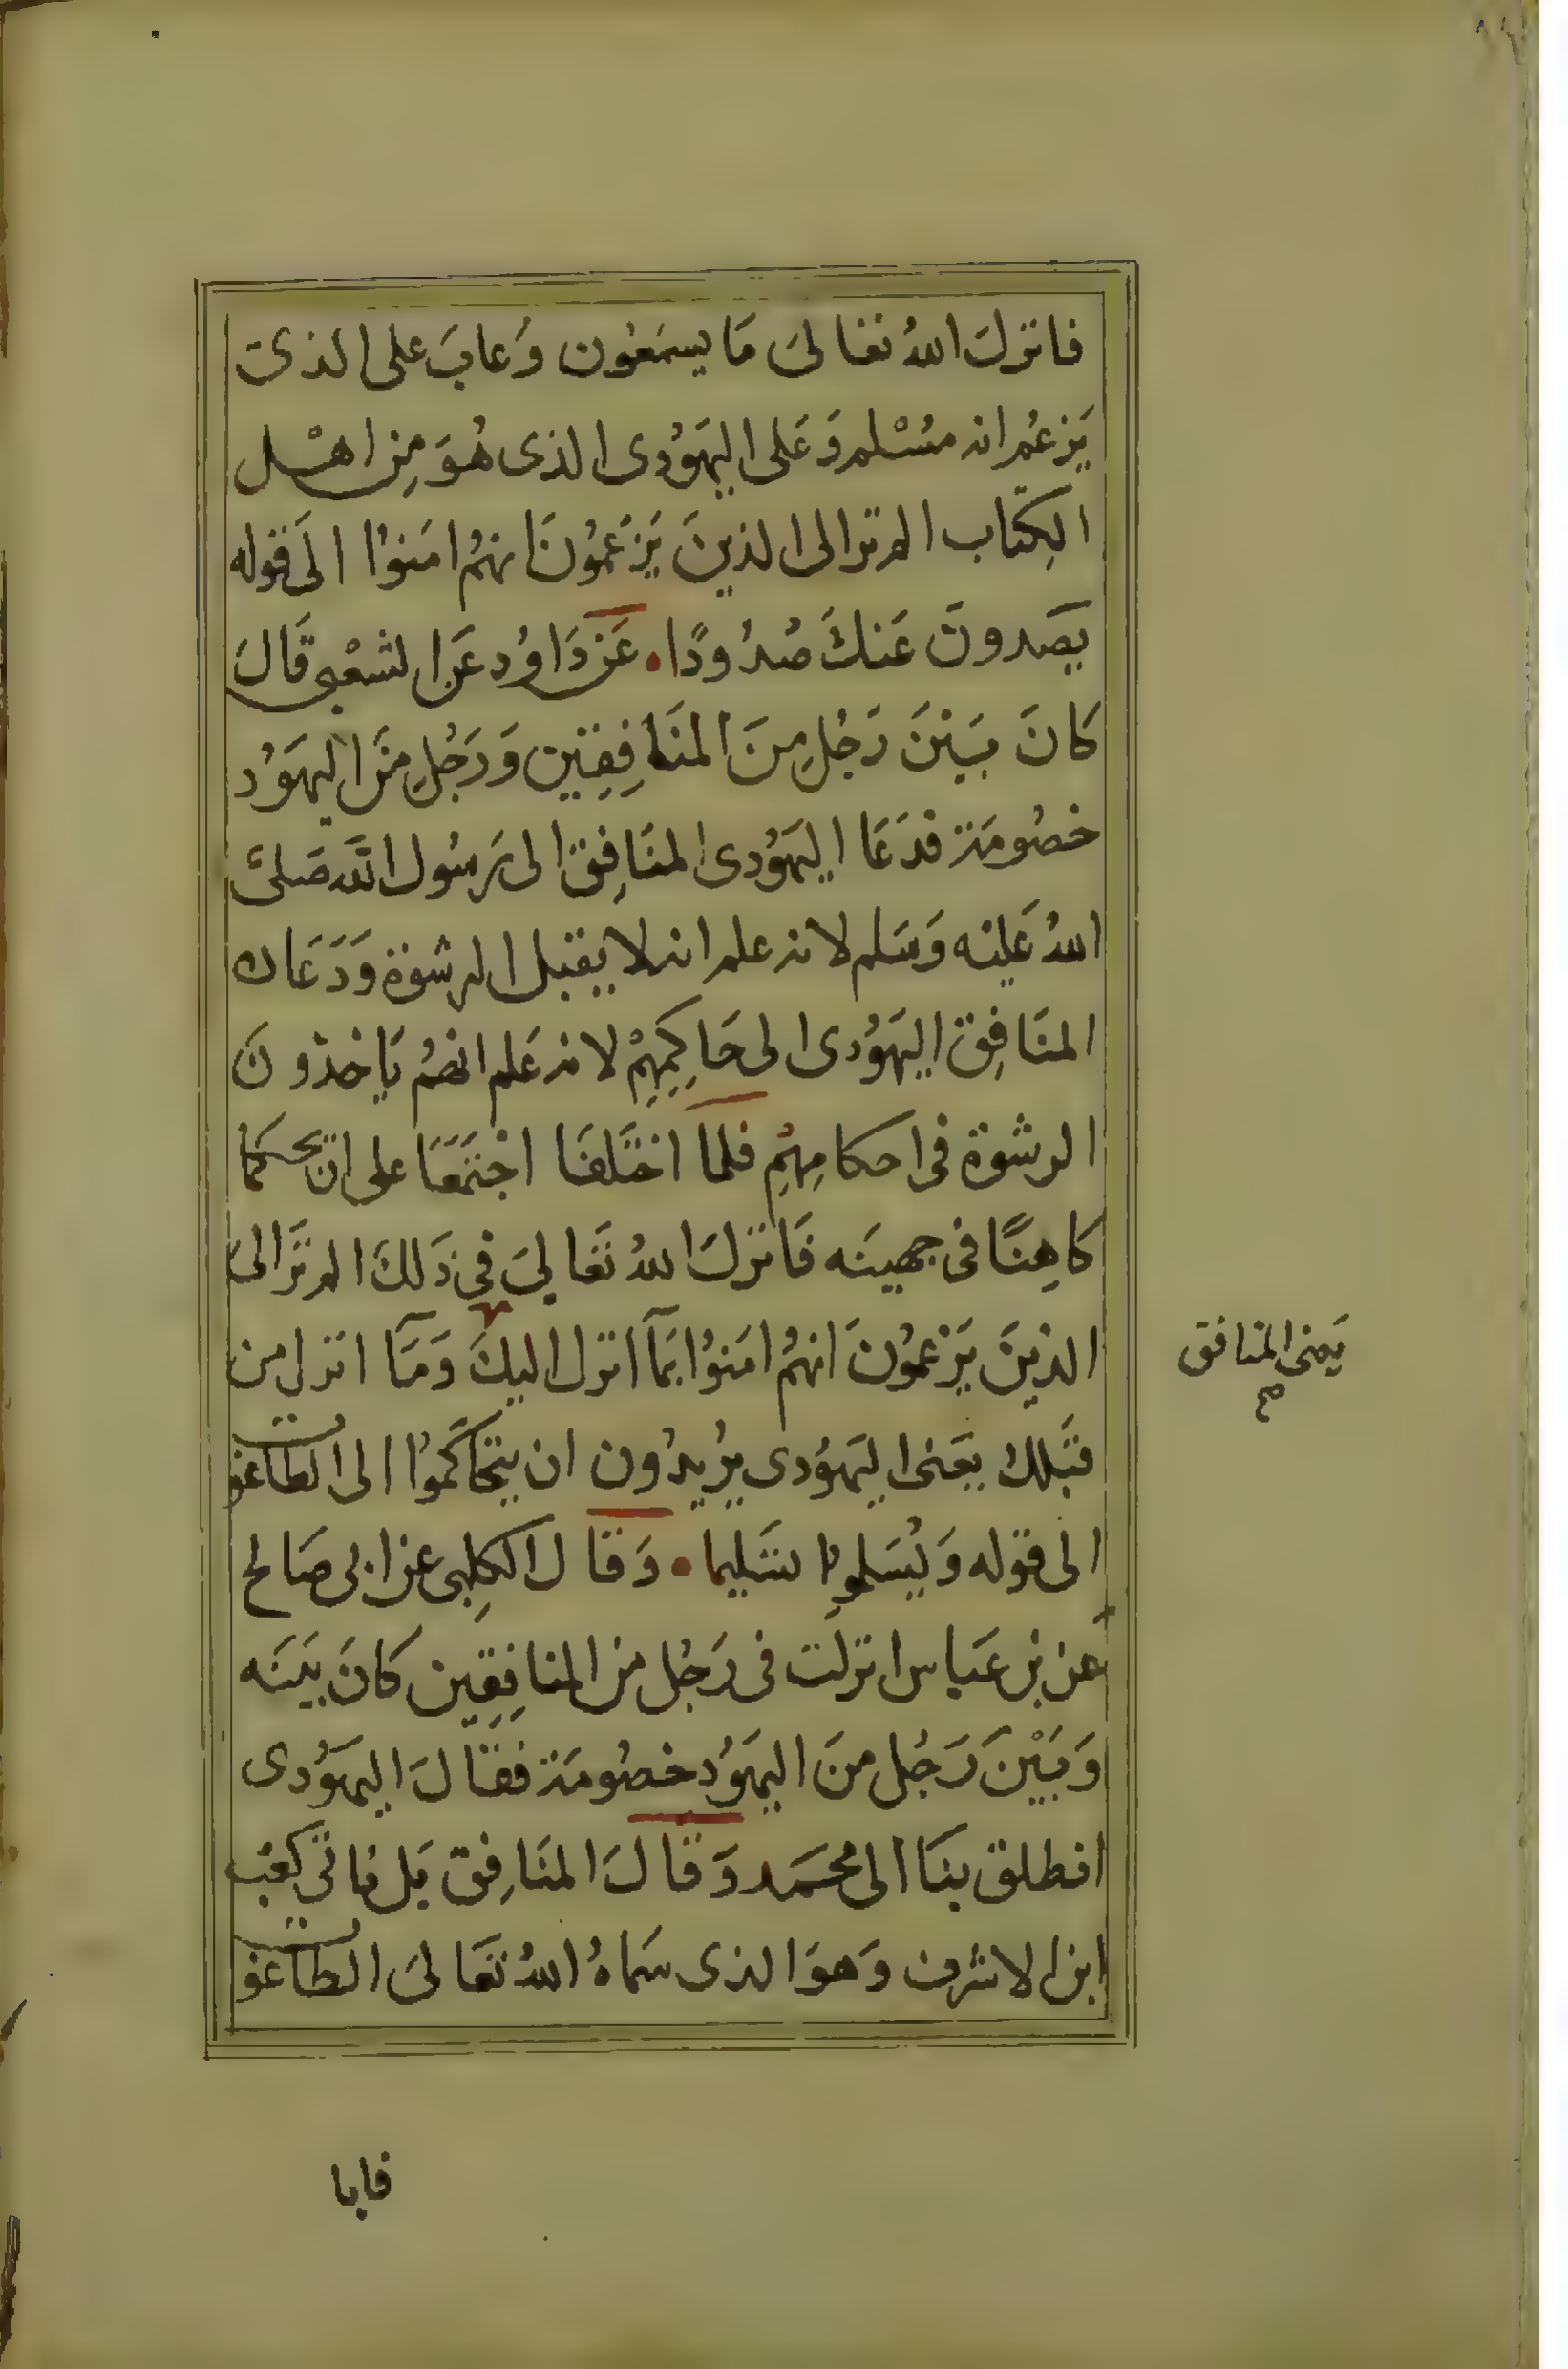 فانزلَ اللهُ تعالىَ مَا يسمَعُون وَعابَ على الذىَ
يَزعُم انه مسْلم وَعَلى اليهَوُدى الذى هُوَ مِن اهْل
الكِتاب الم تر الى الذينَ يَزعَمُونَ انهُم امَنوُا الى قوله
يصَدونَ عَنكَ صُدُودًا. عَن دَاوُد عَن الشعْبى قَالَ
كانَ بَيْنَ رَجُلٍ مِنَ المنَافِقِين وَرَجُلٍ مِنَ اليهَوُد
خصُومَة فدَعَا اليهَوُدى المنَافِق الى رَسُول اللَّه صَلىَّ
اللهُ عَليْه وَسَلم لانه علم انه لا يقبَل الرشوَة وَدَعَاه
المنَافِق اليهَوُدى الى حَاكِمِهِمْ لانه عَلم انهُم يَاخذونَ
الرشوَة فى احكامِهِم فلمَّا اختَلفَا اجْتمَعَا على ان يحكما
كاهِنًا فى جهينَه فَانزلَ اللهُ تَعَالىَ فى ذَلكَ الم تَرَ الى
الذينَ يَزعمُونَ انهُم امَنوُا بمَآ انزل اليكَ وَمَآ انزل من
قبَلك يعَنى اليهَوُدى يرُيدُون ان يتحَاكَموُا الى الطاغوت
الى قوله وَيُسَلموُا تسَليما. وَقال الكلِبى عن ابى صَالح
عن بن عَباس انزلت فى رَجُل من المنافِقِين كانَ بيَنَه
وَبَيْنَ رَجُل منَ اليهَوُد خصُومَة فقالَ اليهَوُدى
انطلق بنَا الى محمَد وَقالَ المنَافِق بَل ناتى كعَب
ابن الاشرف وَهوَ الذى سَماهُ اللهُ تعَالىَ الطاغوت
يَعنى المنافق
صح
فابا